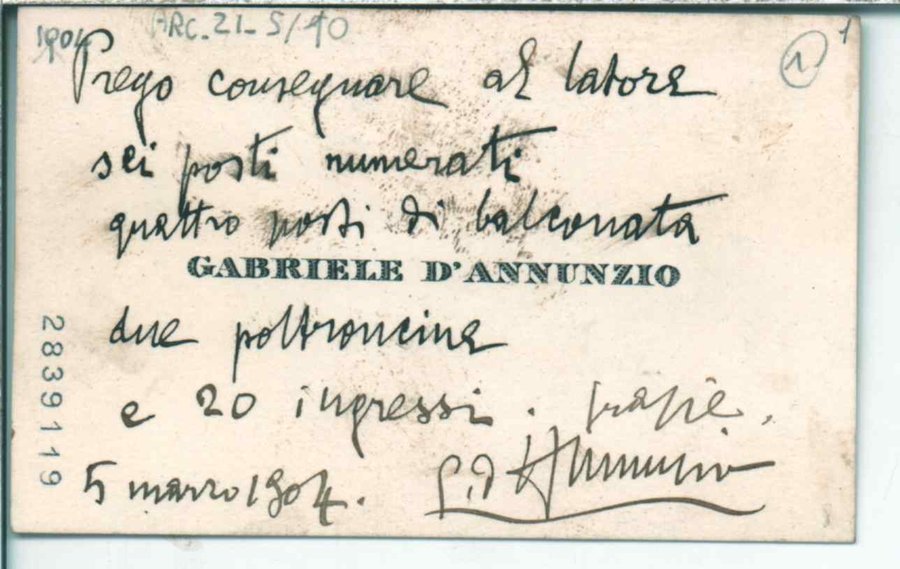 1904
ARC. 21-5/40
1
1
Prego consegnare al latore
sei posti numerati
quattro posti di balconata
GABRIELE D'ANNUNZIO
due poltroncine
e 20 ingressi. Grazie.
5 marzo 1904.
G. d'Annunzio
2839119